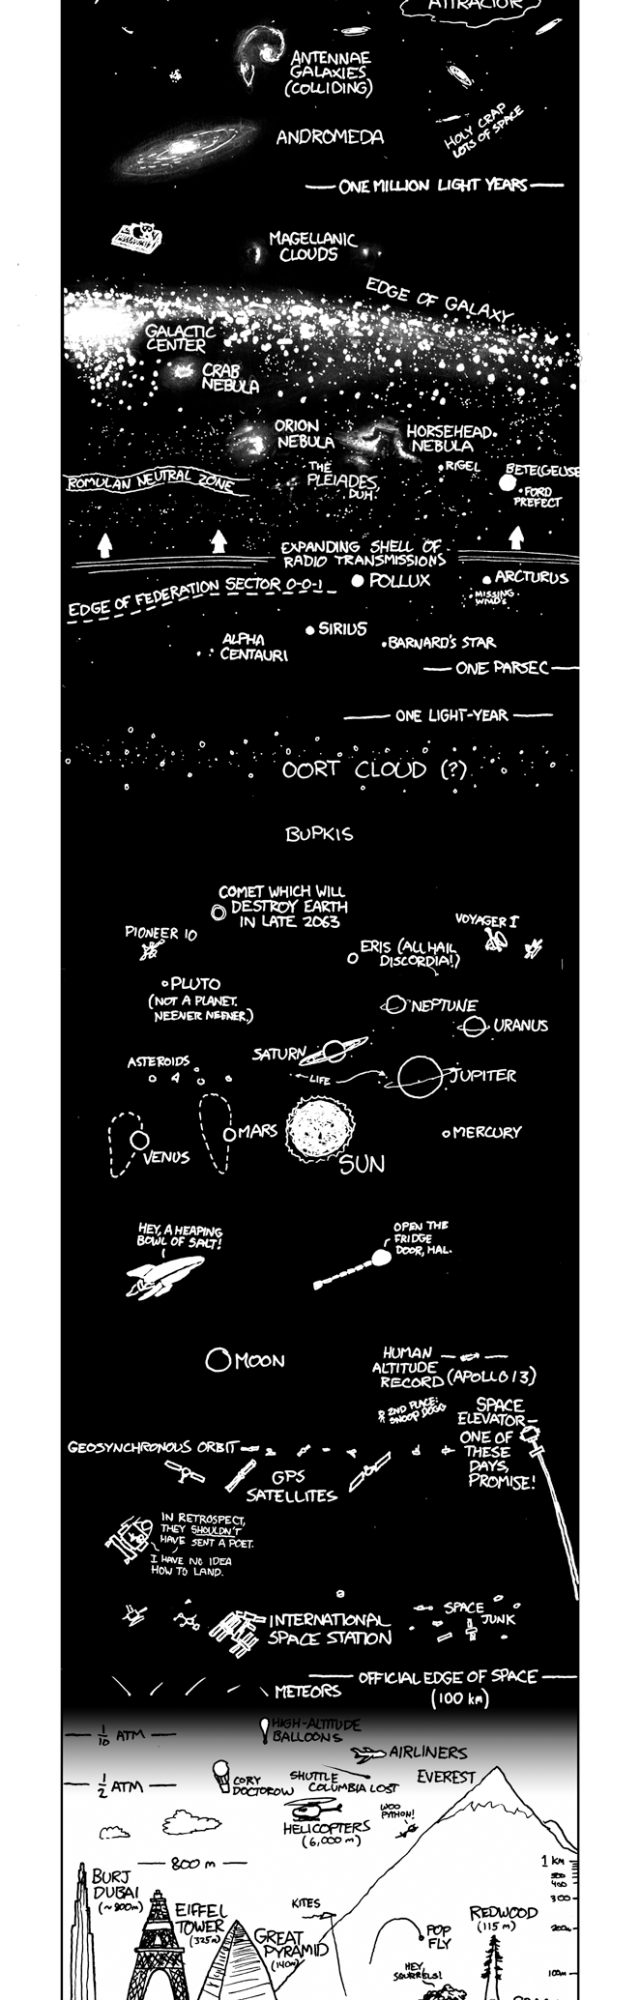 ATTRACTOR
ANTENNAE
GALAXIES
(COLLIDING)
HOLY CRAP
LOTS OF SPACE
ANDROMEDA
ONE MILLION LIGHT YEARS
MAGELLANIC
CLOUDS
EDGE OF GALAXY
GALACTIC
CENTER
CRAB
NEBULA
ORION
NEBULA
HORSEHEAD
NEBULA
THE
PLEIADES,
DUH.
RIGEL
BETELGEUSE
FORD
PREFECT
ROMULAN NEUTRAL ZONE
EXPANDING SHELL OF
RADIO TRANSMISSIONS
EDGE OF FEDERATION SECTOR 0-0-1
POLLUX
ARCTURUS
MISSING
WMDs
SIRIUS
ALPHA
CENTAURI
BARNARD'S STAR
ONE PARSEC
ONE LIGHT-YEAR
OORT CLOUD (?)
BUPKIS
COMET WHICH WILL
DESTROY EARTH
IN LATE 2063
PIONEER 10
VOYAGER I
ERIS (ALL HAIL
DISCORDIA!)
PLUTO
(NOT A PLANET.
NEENER NEENER.)
NEPTUNE
URANUS
SATURN
ASTEROIDS
LIFE
JUPITER
VENUS
MARS
SUN
MERCURY
HEY, A HEAPING
BOWL OF SALT!
OPEN THE
FRIDGE
DOOR, HAL.
MOON
HUMAN
ALTITUDE
RECORD (APOLLO 13)
2ND PLACE:
SNOOP DOGG
SPACE
ELEVATOR—
ONE OF
THESE
DAYS,
PROMISE!
GEOSYNCHRONOUS ORBIT
GPS
SATELLITES
IN RETROSPECT,
THEY SHOULDN'T
HAVE SENT A POET.
I HAVE NO IDEA
HOW TO LAND.
INTERNATIONAL
SPACE STATION
SPACE
JUNK
METEORS
OFFICIAL EDGE OF SPACE
(100 km)
1/10 ATM
HIGH-ALTITUDE
BALLOONS
AIRLINERS
1/2 ATM
CORY
DOCTOROW
SHUTTLE
COLUMBIA LOST
EVEREST
HELICOPTERS
(6,000 m)
WOO
PYTHON!
800 m
1 km
BURJ
DUBAI
(~800m)
EIFFEL
TOWER
(325m)
GREAT
PYRAMID
(140m)
KITES
POP
FLY
REDWOOD
(115 m)
300
200m
100m
HEY,
SQUIRRELS!